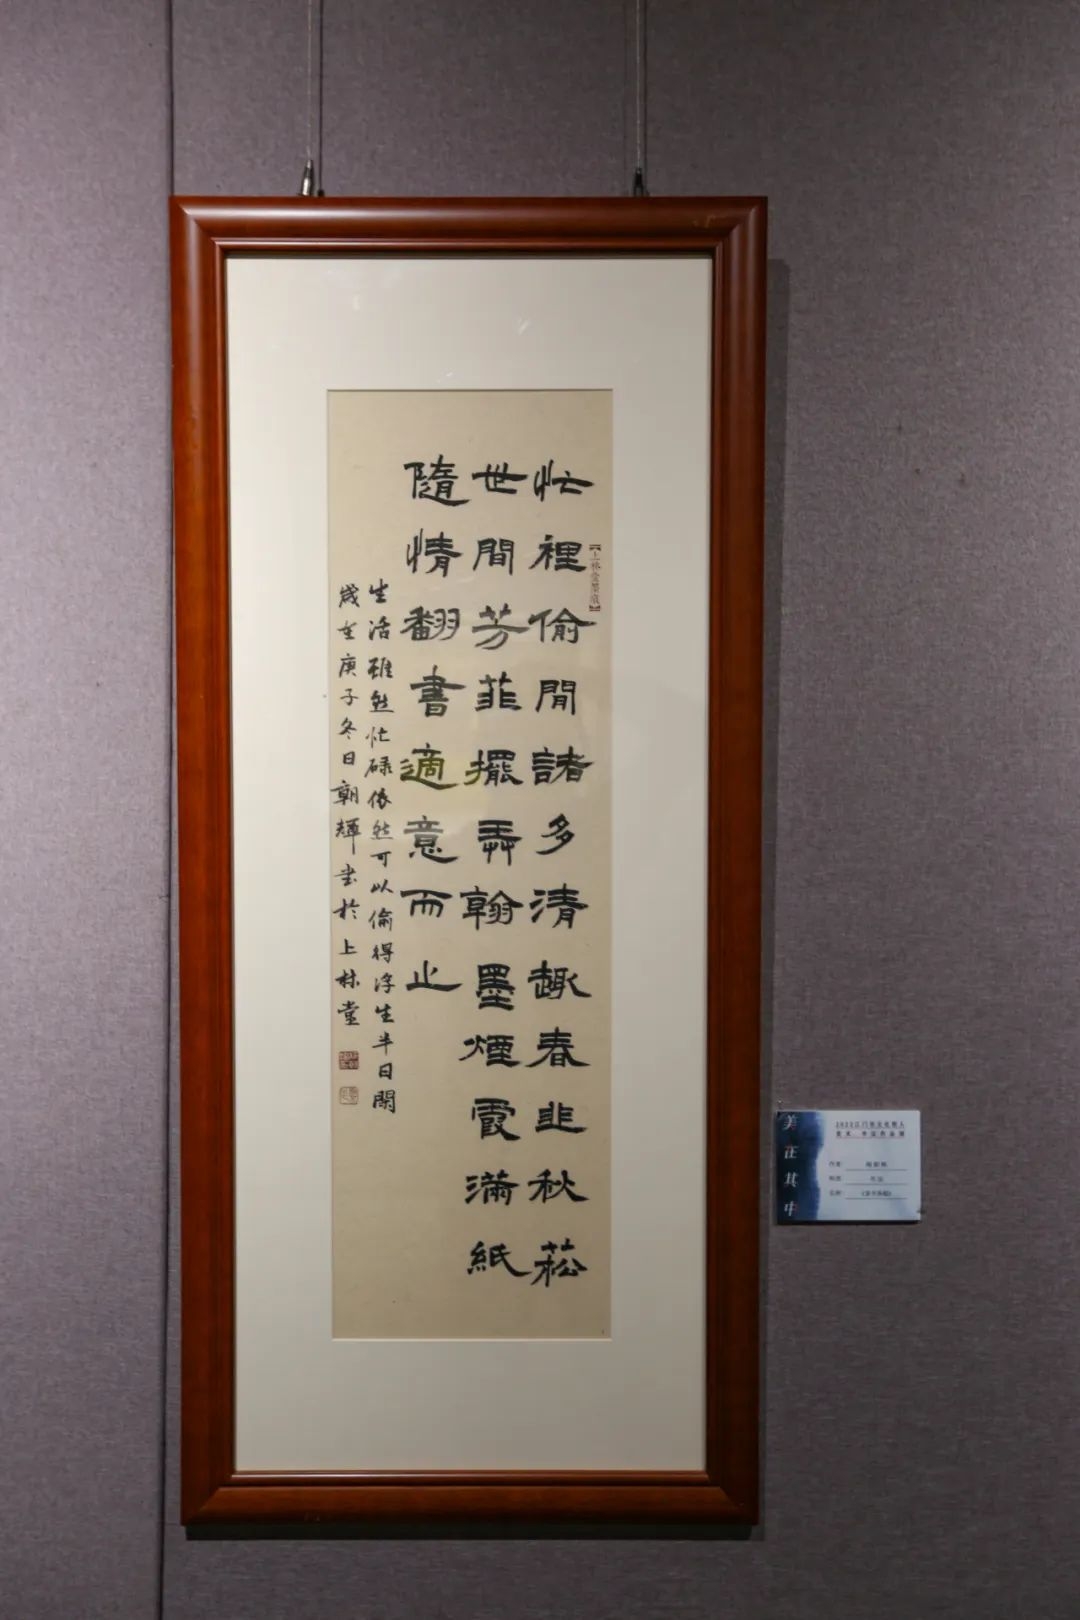 忙裡偷閒諸多清趣春韭秋菘
世間芳菲擺弄翰墨煙霞滿紙
隨情翻書適意而止
生活雖然忙碌依然可以偷得浮生半日閑
歲在庚子冬日朝輝书於上林堂
【上林堂墨痕】
美在其中
2022江门市文化馆人
美术、书法作品展
作者:
书法
名称: